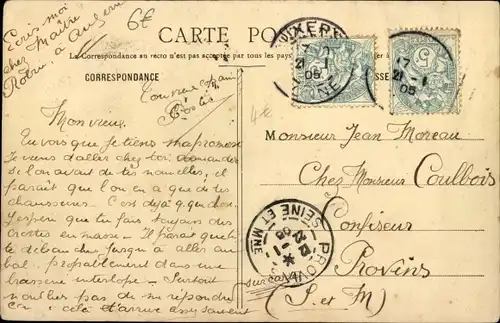 Ecris-moi
chez Maître
à Auxerre
6€
CARTE POSTALE
La Correspondance au recto n'est pas acceptée par tous
CORRESPONDANCE
AUXERRE
21 - 1
05
YONNE
17
21 - 1
05
5
4€
Mon vieux.
Tu vois que je tiens ma promesse
Je viens d'aller chez toi demander
si l'on avait de tes nouvelles, il
paraît que l'on en a que de tes
chaussures. C'est déjà q.que chose.
J'espère que tu fais toujours des
crottes en masse. Il paraît que tu
te débauches jusqu'à aller au
bal, probablement dans une
brasserie interlope. Surtout
pas de me répondre
cela t'arrive assez souvent
Monsieur Jean Moreau
Chez Monsieur Coulbois
Confiseur
Provins
(S. et M)
PROVINS
SEINE ET MNE